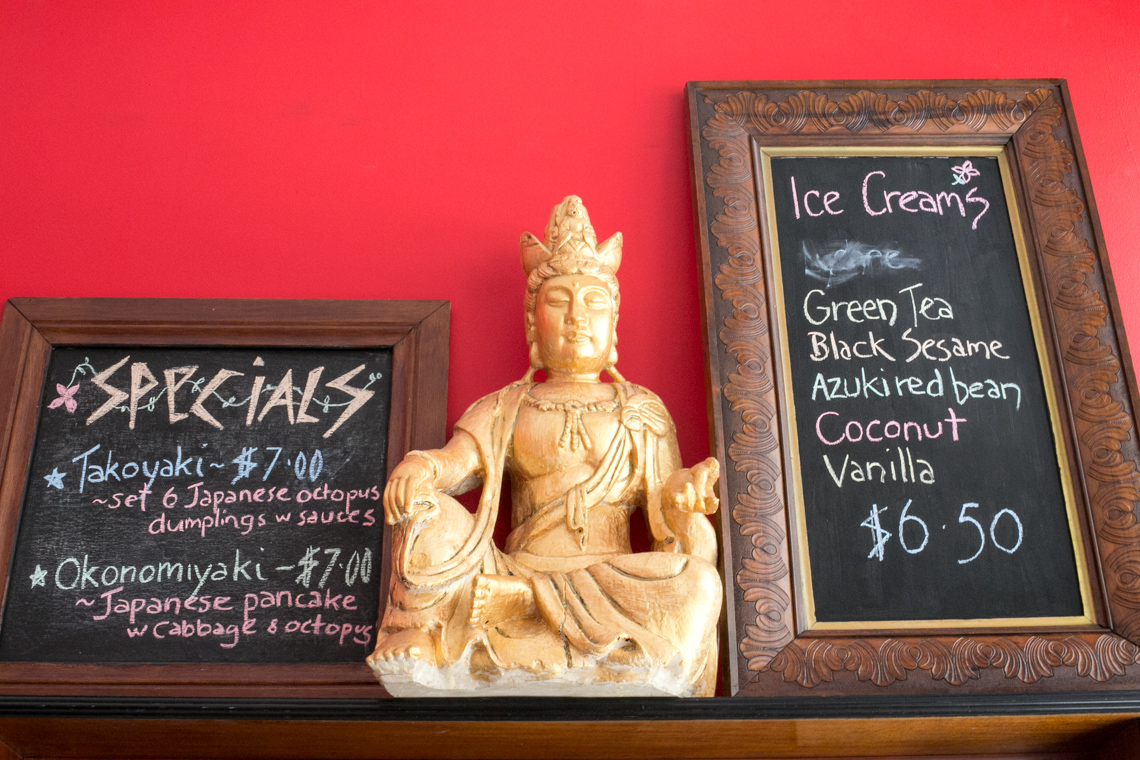 SPECiALS
Takoyaki ~ $7.00
~set 6 Japanese octopus
dumplings w sauces
Okonomiyaki - $7.00
~Japanese pancake
w cabbage & octopus
Ice Creams
Green Tea
Black Sesame
Azuki red bean
Coconut
Vanilla
$6.50